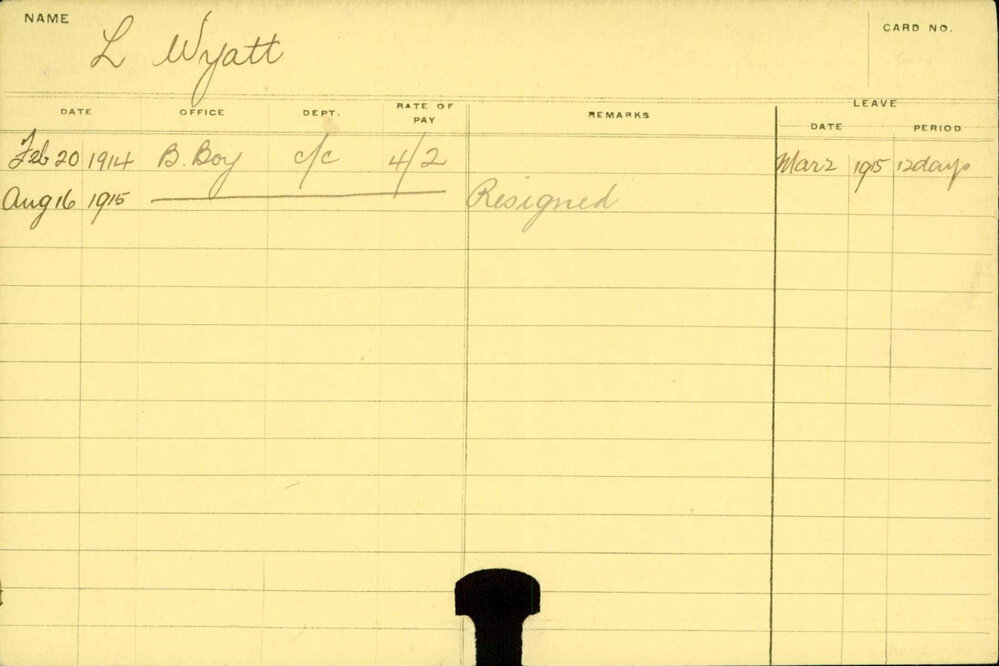 NAME
L Wyatt
CARD NO.
DATE OFFICE DEPT. RATE OF PAY REMARKS LEAVE
DATE PERIOD
Feb 20 1914 B. Boy c/c 4/2 Mar 2 1915 12 days
Aug 16 1915 Resigned